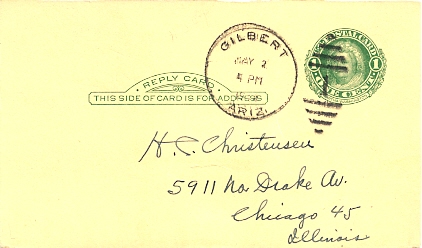 GILBERT
MAY 2
PM
ARIZ.
POSTAL CARD
1 1
ONE CENT
REPLY CARD
THIS SIDE OF CARD IS FOR ADDRESS
H. C. Christensen
5911 No. Drake Av.
Chicago 45
Illinois